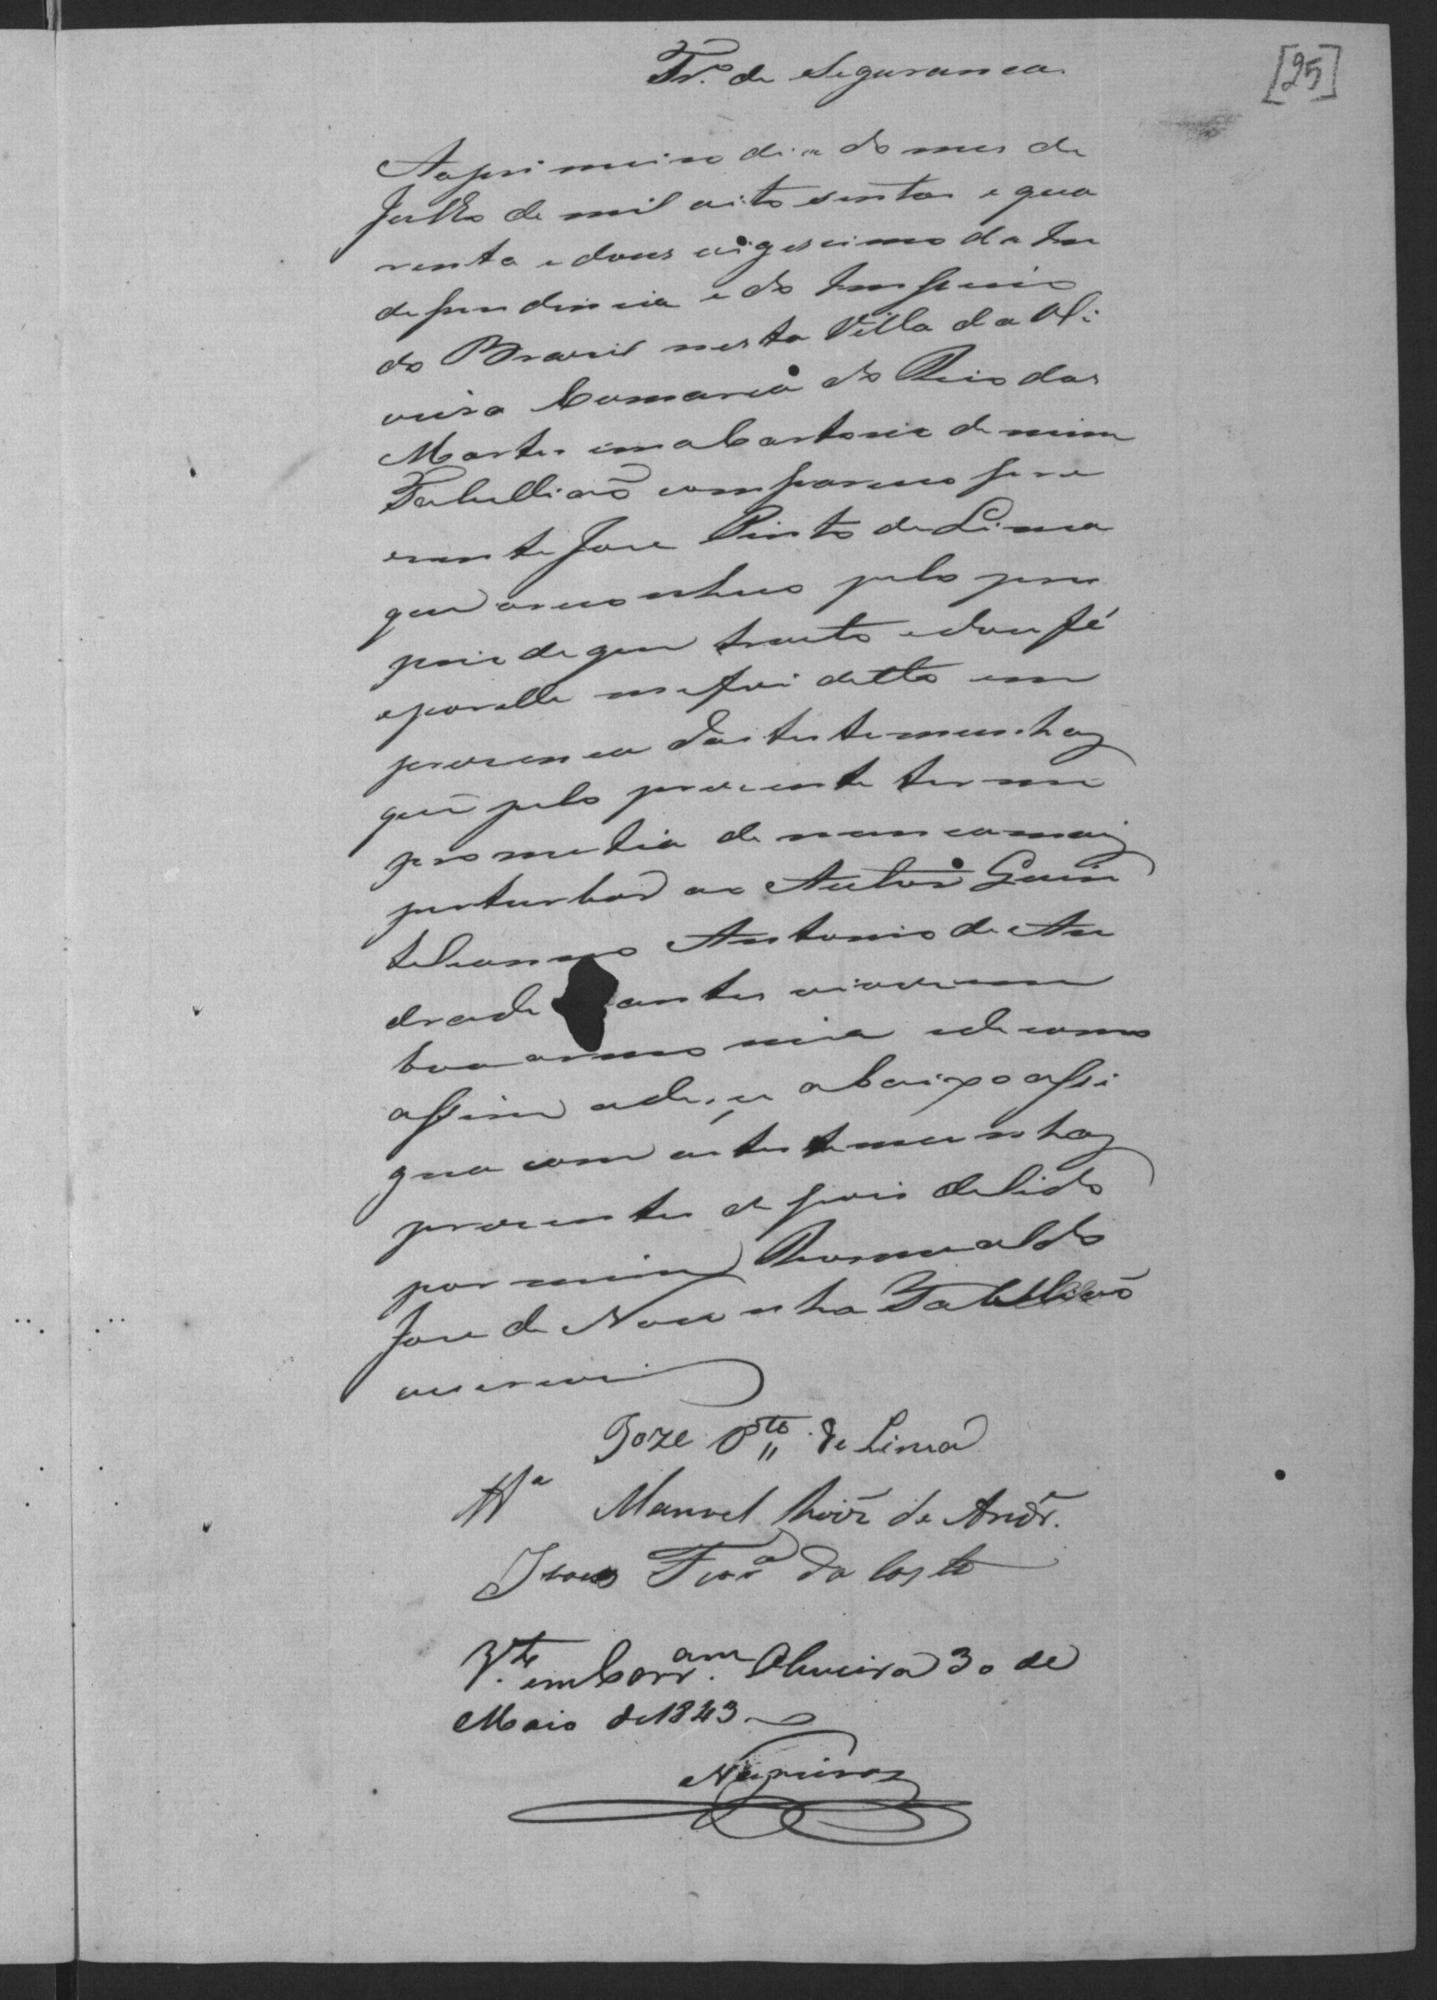 [25]
Tr.º de Seguranca
Aoprimeiro dia do mes de
Julho de mil oito sentos e qua
renta e dous vigescimo da In
dependencia e do Imperio
do Brasil nesta Villa da Oli
veira Comarca do Rio das
Mortes em o Cartorio de mim
Tabellião compareceo pre
zente Jose Pinto de Lima
que reconheco pelo pro
prio de que tracto e dou fé
e por elle me foi ditto em
prezenca das testemunhas
que pelo prezente termo
prometia de nunca mais
perturbar ao Author Quin
teleanno Antonio de An
drade antes viverem
boa armonia e de como
assim o dice abaixo assi
gna com as testemunhas
prezentes depois de lido
por mim Romualdo
Jose de Noronha Tabellião
oescrevi
Joze P.to de Lima
Tt.ª Manoel Roiz de Andr.e
Ferr.ª da Costa
V.to em Corr.am Oliveira 30 de
Maio de 1843